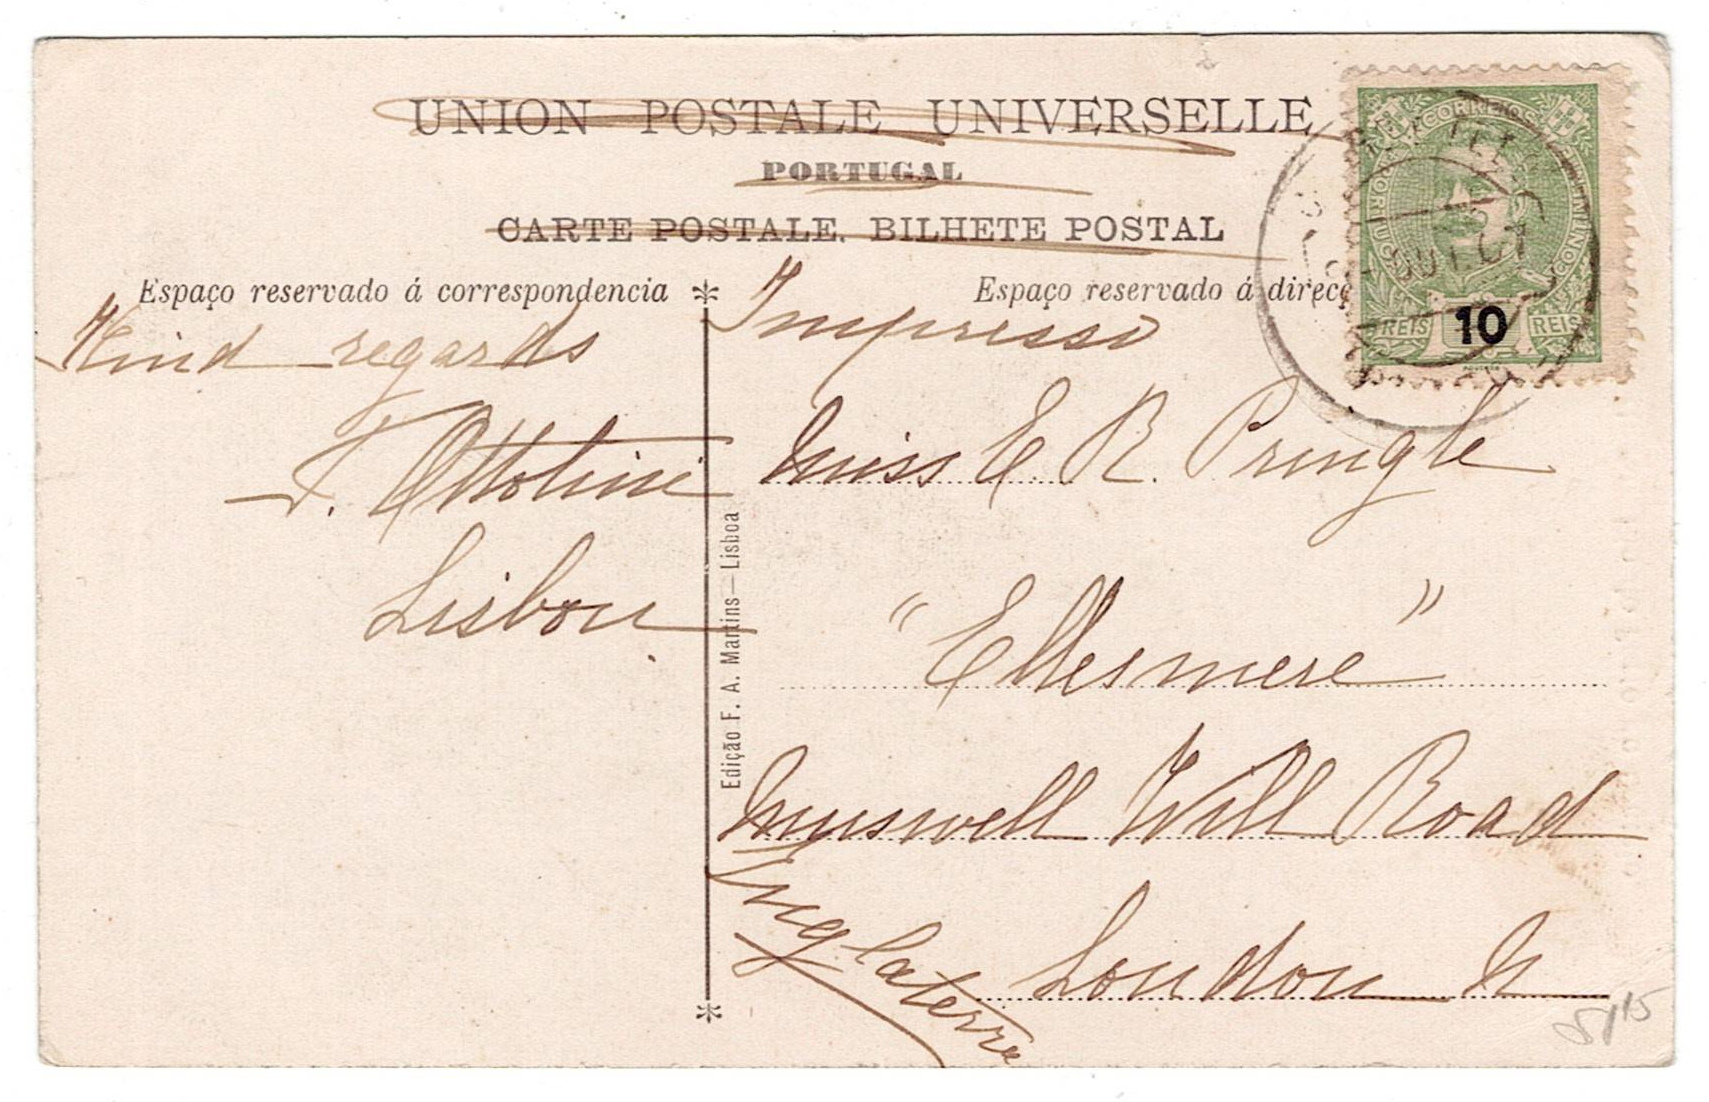 UNION POSTALE UNIVERSELLE
PORTUGAL
CARTE POSTALE. BILHETE POSTAL
Espaço reservado á correspondencia
Espaço reservado á direcç
Kind regards
F. Ottolini
Lisbon
Edição F. A. Martins—Lisboa
Impresso
Miss E R. Pringle
"Ellesmere"
Muswell Hill Road
London N
Inglaterra
CORREIOS
PORTUGAL
CONTINENTE
10
REIS REIS